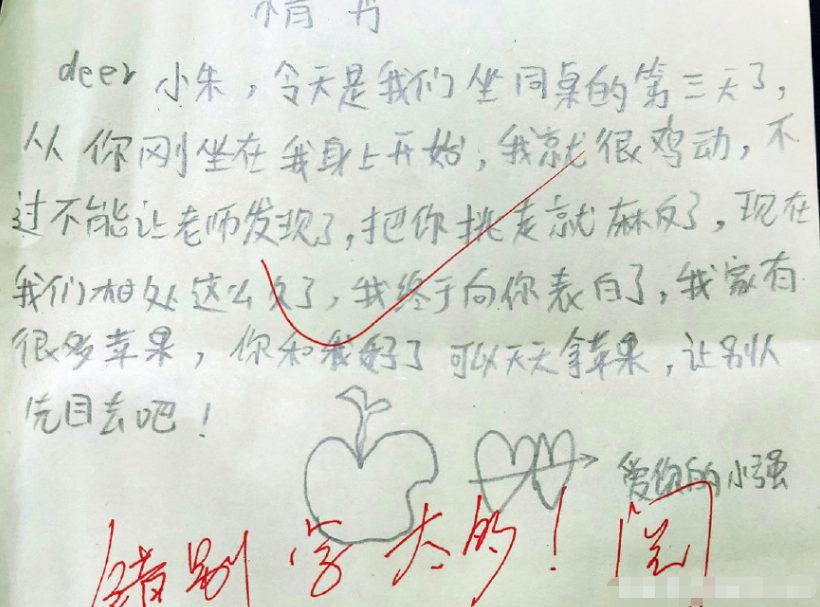 情书
deer 小朱，今天是我们坐同桌的第三天了，
从你刚坐在我身上开始，我就很鸡动，不
过不能让老师发现了，把你挑走就麻反了，现在
我们相处这么久了，我终于向你表白了，我家有
很多苹果，你和我好了可以天天拿苹果，让别人
先目去吧！
爱你的小强
错别字太的！阅